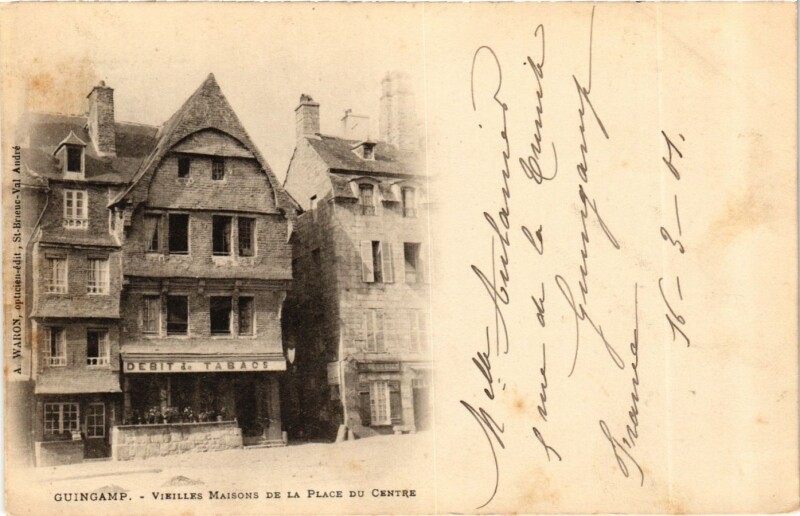 A. WARON, opticien-édit, St-Brieuc-Val André
DEBIT de TABACS
GUINGAMP. - VIEILLES MAISONS DE LA PLACE DU CENTRE
Melle
rue de la
Guingamp
France
16-3-01.